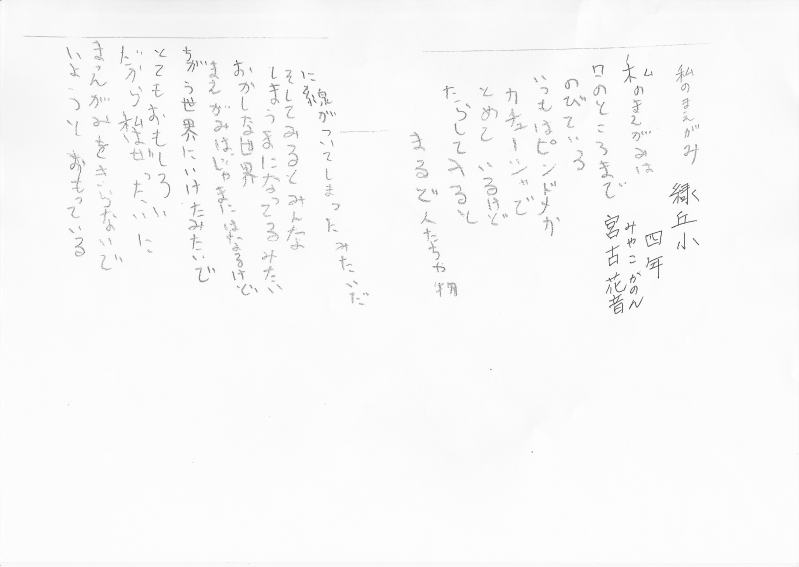 私のまえがみ
緑丘小
四年
みやこかのん
宮古花音
私のまえがみは
口のところまで
のびている
いつもはピンドメか
カチューシャで
とめているけど
たらしてみると
まるで人たちや物
に線がついてしまったみたいだ
そしてみるとみんな
しまうまになってるみたい
おかしな世界
まえがみはじゃまにはなるけど
ちがう世界にいけたみたいで
とてもおもしろい
だから私はぜったいに
まえがみをきらないで
いようとおもっている